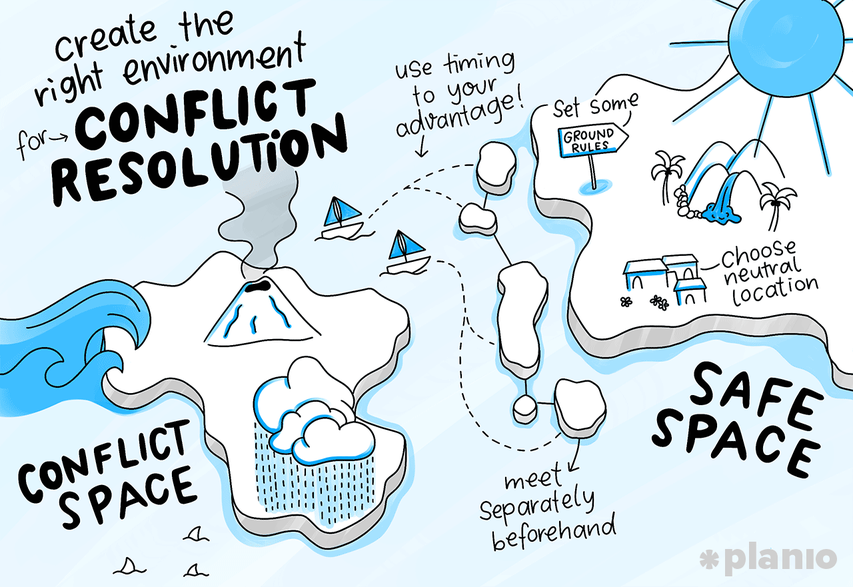 create the
right environment
for→ CONFLICT
RESOLUTiON
use timing
to your
advantage!
Set some
GROUND
RULES
Choose
neutral
location
CONFLICT
SPACE
SAFE
SPACE
meet
Separately
beforehand
*planio